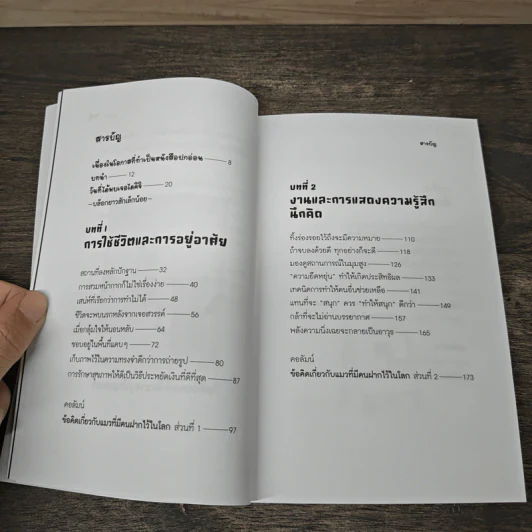 สารบัญ
เนื่องในโอกาสที่ทำเป็นหนังสือปกอ่อน 8
บทนำ 12
วันที่ได้พบเจอโดคิจิ 20
-บล็อกยาวสักเล็กน้อย-
บทที่ 1
การใช้ชีวิตและการอยู่อาศัย
สถานที่ลงหลักปักฐาน 32
การสวมหน้ากากก็ไม่ใช่เรื่องง่าย 40
เสน่ห์ที่เรียกว่าการทำไม่ได้ 48
ชีวิตจะพบนรกหลังจากเจอสวรรค์ 56
เมื่อกลุ้มใจให้นอนหลับ 64
ชอบอยู่ในพื้นที่แคบๆ 72
เก็บภาพไว้ในความทรงจำดีกว่าการถ่ายรูป 80
การรักษาสุขภาพให้ดีเป็นวิธีประหยัดเงินที่ดีที่สุด 87
คอลัมน์
ข้อคิดเกี่ยวกับแมวที่มีคนฝากไว้ในโลก ส่วนที่ 1 97
สารบัญ
บทที่ 2
งานและการแสดงความรู้สึก
นึกคิด
ทิ้งร่องรอยไว้ถึงจะมีความหมาย 110
ถ้าจบลงด้วยดี ทุกอย่างก็จะดี 118
มองดูสถานการณ์ในมุมสูง 126
"ความยืดหยุ่น" ทำให้เกิดประสิทธิผล 133
เทคนิคการทำให้คนอื่นช่วยเหลือ 141
แทนที่จะ "สนุก" ควร "ทำให้สนุก" ดีกว่า 149
กล้าที่จะไม่อ่านบรรยากาศ 157
พลังความนิ่งเฉยจะกลายเป็นอาวุธ 165
คอลัมน์
ข้อคิดเกี่ยวกับแมวที่มีคนฝากไว้ในโลก ส่วนที่ 2 173